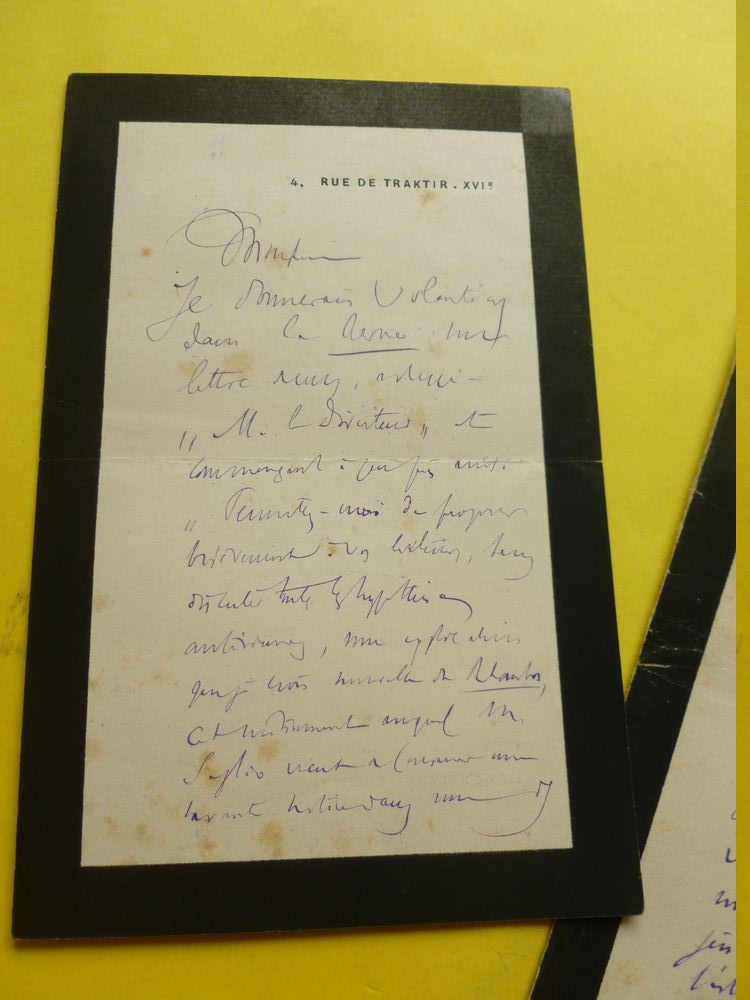 4, RUE DE TRAKTIR. XVIE
Monsieur
Je donnerais volontiers
dans la Revue une
lettre
„ M. le Directeur „ et
commençant à peu près ainsi :
„ Permettez-moi de proposer
brièvement à vos lecteurs, sans
discuter toutes les hypothèses
antérieures, une explication
que je crois nouvelle du Rhombos,
cet instrument auquel M.
Saglio vient de consacrer une
savante notice dans une